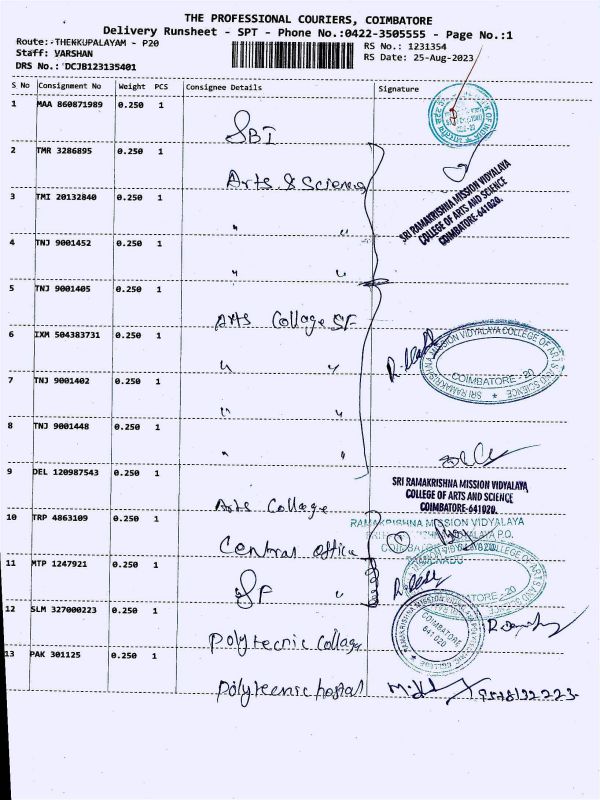 THE PROFESSIONAL COURIERS, COIMBATORE
Delivery Runsheet - SPT - Phone No.:0422-3505555 - Page No.:1
Route:-THEKKUPALAYAM - P20
RS No.: 1231354
Staff: VARSHAN
RS Date: 25-Aug-2023
DRS No.: DCJB123135401
S No Consignment No Weight PCS Consignee Details Signature
1 MAA 860871989 0.250 1 SBI
2 TMR 3286895 0.250 1 Arts & Science
SRI RAMAKRISHNA MISSION VIDYALAYA
COLLEGE OF ARTS AND SCIENCE
COIMBATORE-641020.
3 TMI 20132840 0.250 1 " "
4 TNJ 9001452 0.250 1 " "
5 TNJ 9001405 0.250 1 Arts Collage SF
6 IXM 504383731 0.250 1 " "
SRI RAMAKRISHNA MISSION VIDYALAYA COLLEGE OF ARTS AND SCIENCE
COIMBATORE - 20
7 TNJ 9001402 0.250 1 " "
8 TNJ 9001448 0.250 1 " "
9 DEL 120987543 0.250 1 Arts College
SRI RAMAKRISHNA MISSION VIDYALAYA
COLLEGE OF ARTS AND SCIENCE
COIMBATORE-641020.
10 TRP 4863109 0.250 1 Central office
RAMAKRISHNA MISSION VIDYALAYA
11 MTP 1247921 0.250 1 SF "
12 SLM 327000223 0.250 1 Polytecnic Collage
COIMBATORE
641 020
13 PAK 301125 0.250 1 Polytecnic hostal